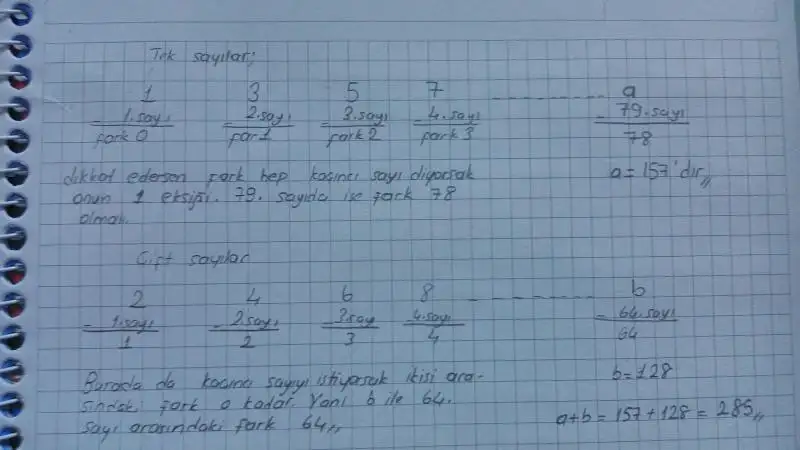 Tek sayılar;
1 3 5 7 ------------ a
- 1.sayı - 2.sayı - 3.sayı - 4.sayı - 79.sayı
fark 0 far 1 fark 2 fark 3 78
dikkat edersen fark hep kaçıncı sayı diyorsak
onun 1 eksiği. 79. sayıda ise fark 78
olmalı.
a = 157'dir,,
Çift sayılar
2 4 6 8 ------------ b
- 1.sayı - 2.sayı - 3.say 4.sayı - 64.sayı
1 2 3 4 64
Burada da kaçıncı sayıyı istiyorsak ikisi ara-
sındaki fark o kadar. Yani b ile 64.
sayı arasındaki fark 64,,
b=128
a+b = 157+128 = 285,,